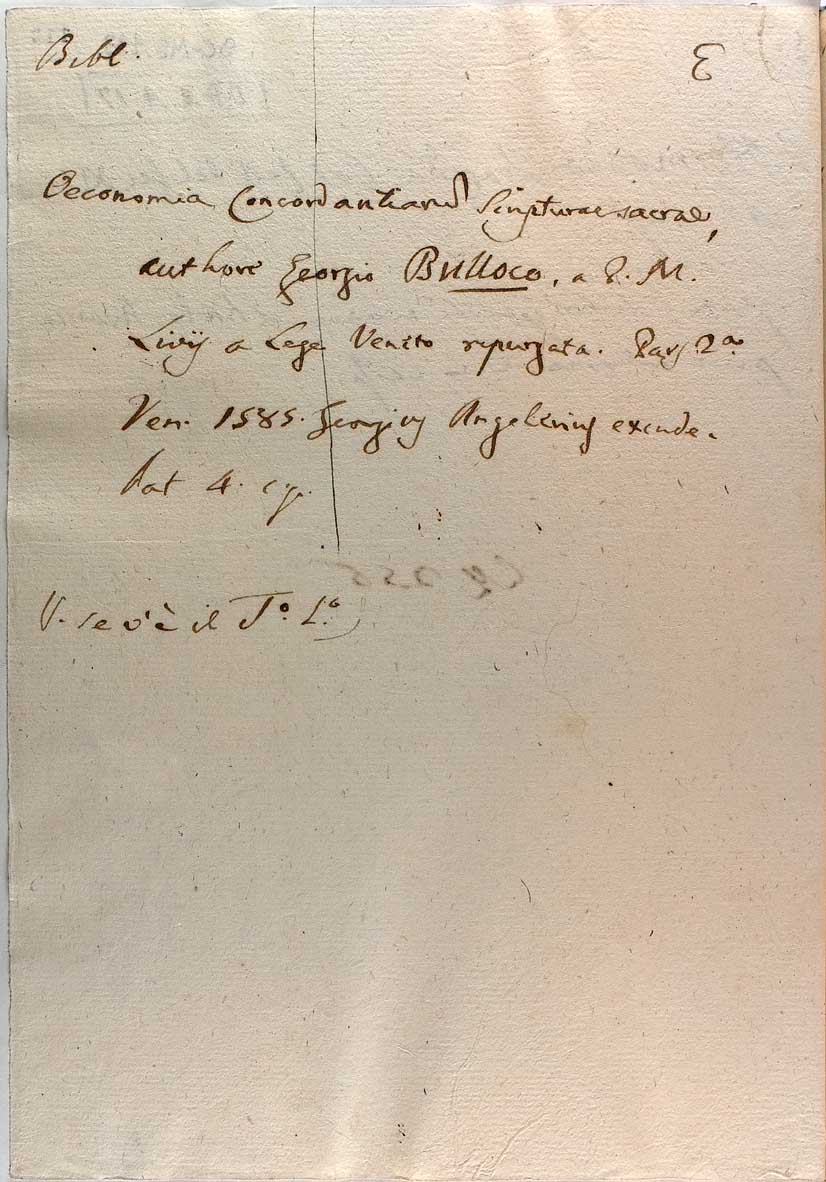 Bibl. E
Oeconomia Concordantiarũ Scripturae sacrae,
authore Georgio Bulloco, a F. M.
Livij a Lege Veneto repurgata. Pars 2.a
Ven. 1585. Georgius Angelerius exude.
bat 4. cg.
V. se v'è il T.o